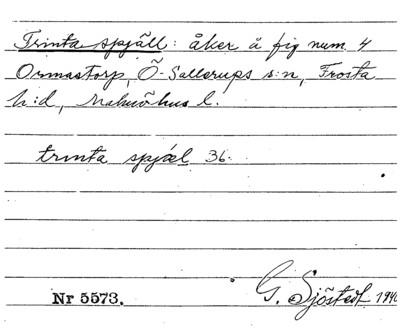 Trinta spjäll: åker å fig num. 4
Ormastorp, Ö-Sallerups s:n, Frosta
h:d, Malmöhus l.
trinta spjæl 36.
Nr 5573. G. Sjöstedt 1946